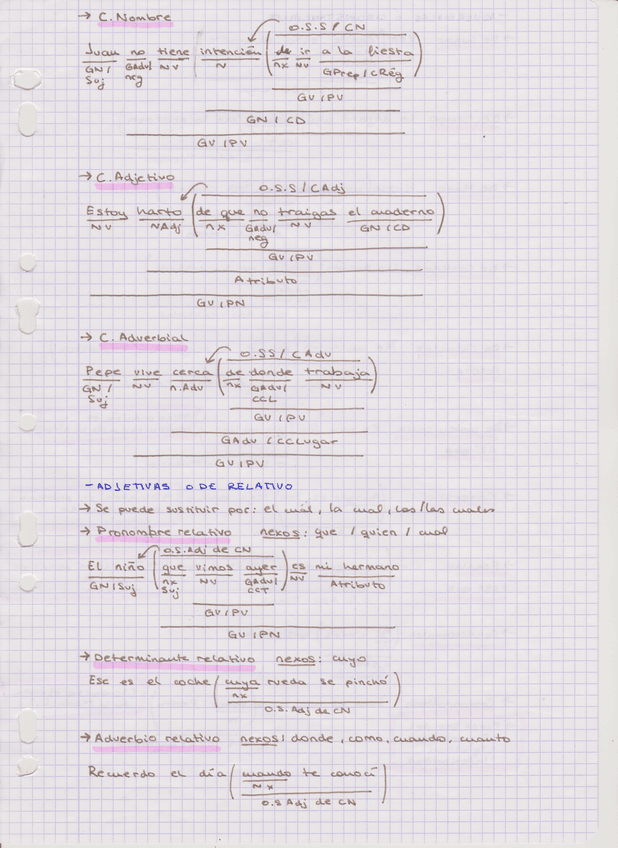 → C. Nombre
O.S.S / CN
Juan no tiene intención (de ir a la fiesta)
GN/ Suj GAdv/ neg NV N nx NV GPrep / CRég
GV / PV
GN / CD
GV / PV
→ C. Adjetivo
O.S.S / CAdj
Estoy harto (de que no traigas el cuaderno)
NV NAdj nx GAdv/ neg NV GN / CD
GV / PV
Atributo
GV / PN
→ C. Adverbial
O.SS / CAdv
Pepe vive cerca (de donde trabaja)
GN / Suj NV n.Adv nx GAdv/ CCL NV
GV / PV
GAdv / CCLugar
GV / PV
- ADJETIVAS O DE RELATIVO
→ Se puede sustituir por: el cuál, la cual, los/las cuales
→ Pronombre relativo nexos: que / quien / cual
O.S.Adj de CN
El niño (que vimos ayer) es mi hermano
GN/Suj nx Suj NV GAdv/ CCT NV Atributo
GV / PV
GV / PN
→ Determinante relativo nexos: cuyo
Ese es el coche (cuya rueda se pinchó)
nx
O.S.Adj de CN
→ Adverbio relativo nexos: donde, como, cuando, cuanto
Recuerdo el día (cuando te conocí)
Nx
O.S Adj de CN